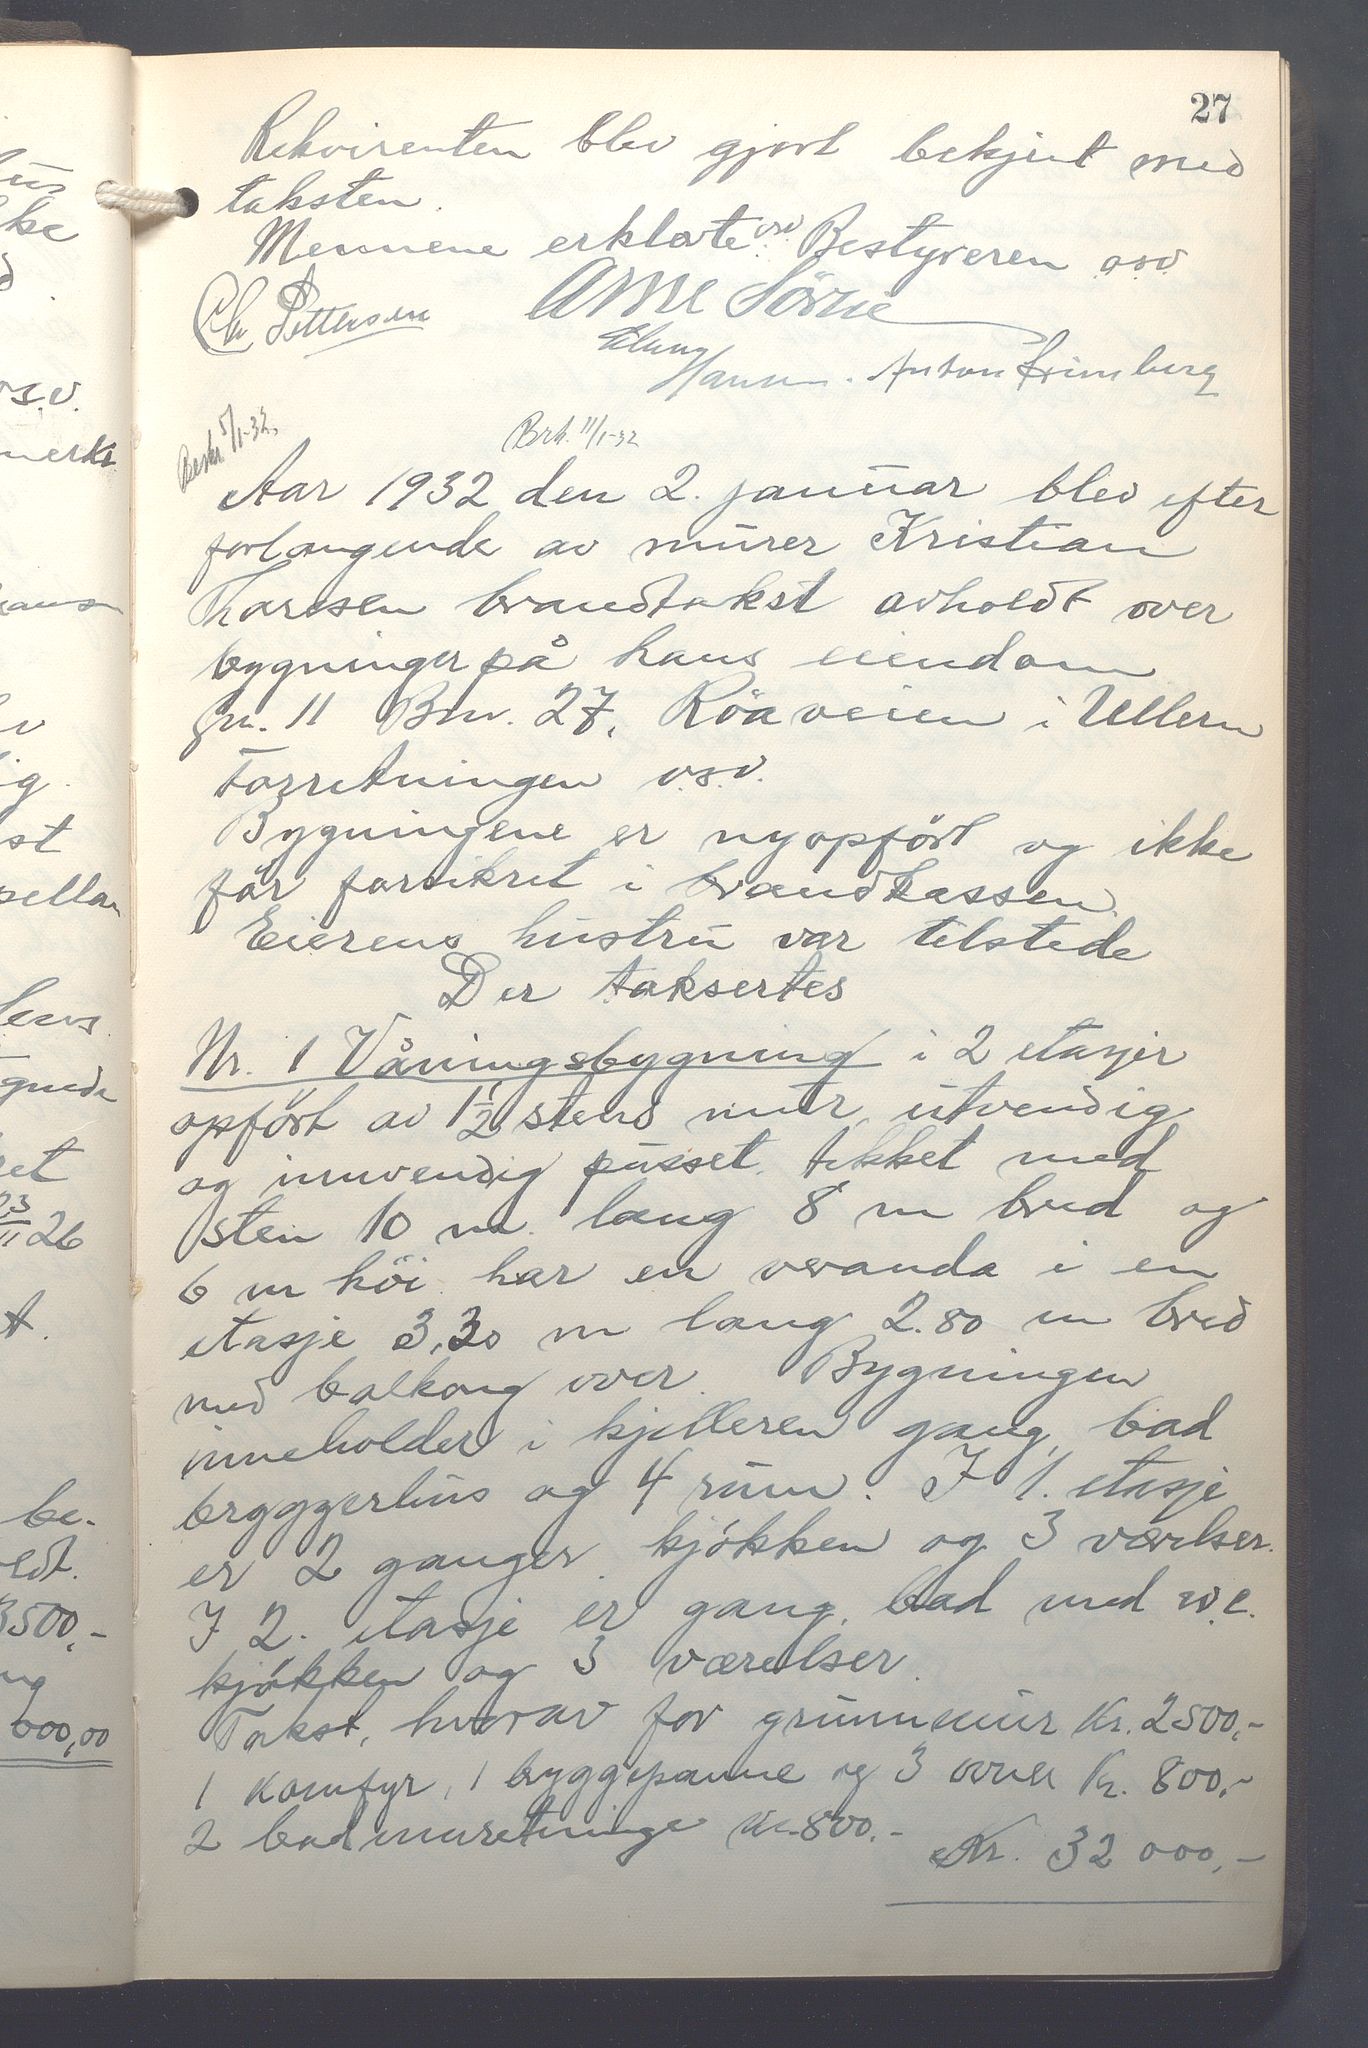 27
Rekvirenten blev gjort bekjent med
taksten.
Mennene erklærte osv. Bestyreren osv.
Chr Pettersen Arne Sörlie
Hansen. Anton Grimberg
Beskr. 5/1-32. Brk. 11/1-32
Aar 1932 den 2. januar blev efter
forlangende av murer Kristian
Thoresen brandtakst avholdt over
bygninger på hans eiendom
Gn. 11 Bnr. 27, Röaveien i Ullern
Forretningen o.s.v.
Bygningene er nyopfört og ikke
för forsikret i brandkassen.
Eierens hustru var tilstede
Der taksertes
Nr. 1 Våningsbygning i 2 etasjer
opfört av 1 1/2 stens mur, utvendig
og innvendig pusset. tekket med
sten 10 m. lang 8 m bred og
6 m höi. har en veranda i en
etasje 3,30 m lang 2.80 m bred
med balkong over. Bygningen
inneholder i kjelleren gang, bad
bryggerhus og 4 rum. I 1. etasje
er 2 ganger, kjökken og 3 værelser.
I 2. etasje er gang, bad med w.c.
kjökken og 3 værelser.
Takst, hvorav for grunnmur Kr. 2500,-
1 komfyr, 1 bryggepanne og 3 ovner Kr. 800,-
2 badinnretninger Kr. 800.-
Kr. 32 000,-